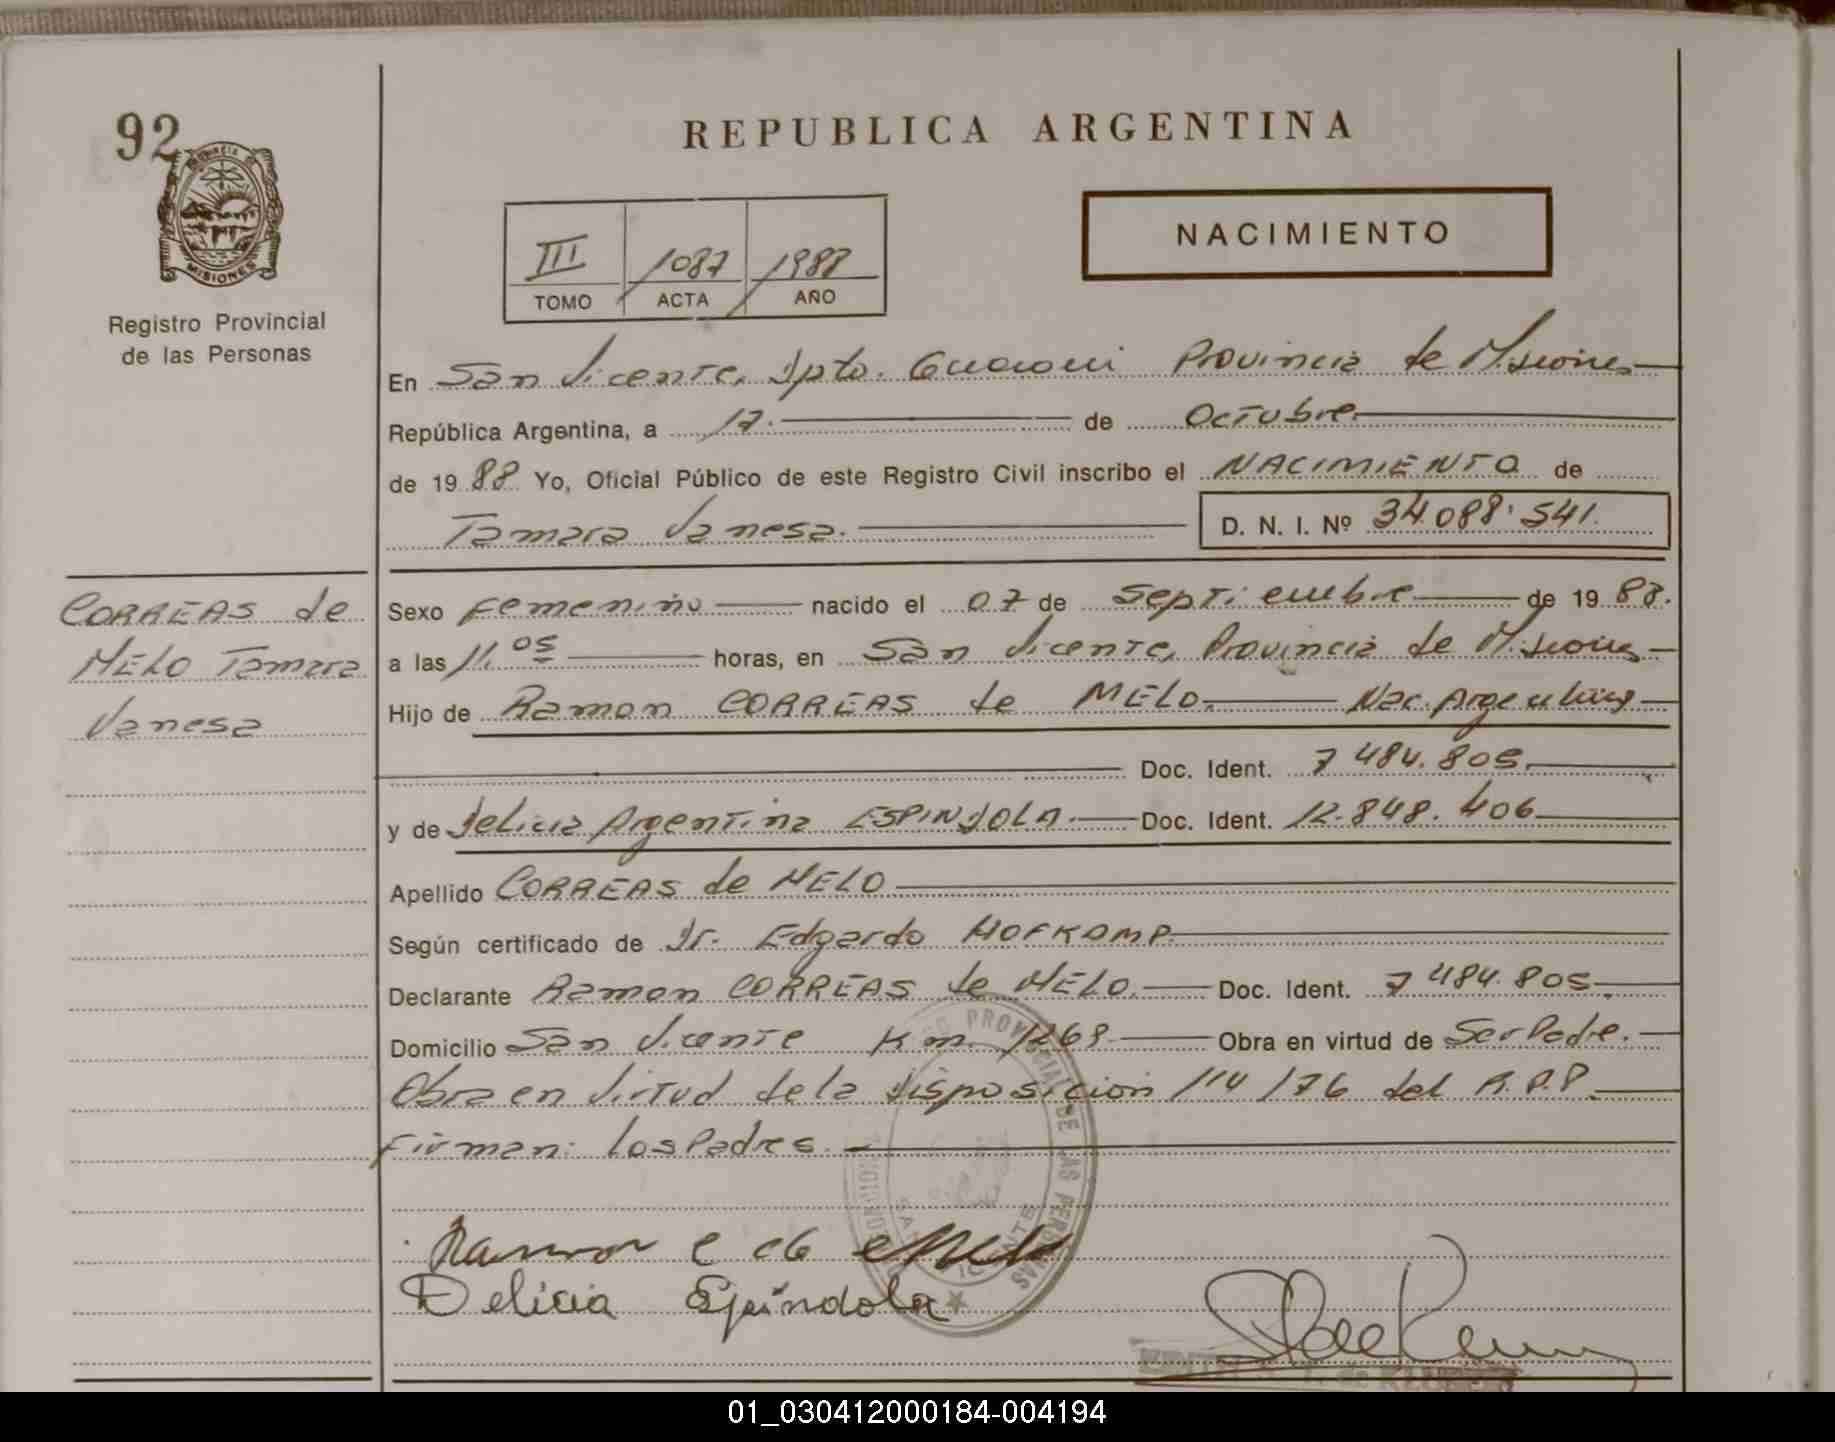 92
REPUBLICA ARGENTINA
PROVINCIA DE
MISIONES
Registro Provincial
de las Personas
NACIMIENTO
III 1087 1988
TOMO ACTA AÑO
En San Vicente, Dpto. Guarani Provincia de Misiones
República Argentina, a 17. de Octubre
de 1988 Yo, Oficial Público de este Registro Civil inscribo el NACIMIENTO de
Tamara Vanesa. D. N. I. Nº 34.088.541.
CORREAS de
MELO Tamara
Vanesa
Sexo Femenino nacido el 07 de Septiembre de 1988.
a las 11.05 horas, en San Vicente, Provincia de Misiones
Hijo de Ramon CORREAS de MELO. Nac. Argentina
Doc. Ident. 7 484.805.
y de Delicia Argentina ESPINDOLA. Doc. Ident. 12.848.406
Apellido CORREAS de MELO
Según certificado de Dr. Edgardo HOFKAMP.
Declarante Ramon CORREAS de MELO. Doc. Ident. 7 484.805.
Domicilio San Vicente Km. 1269 Obra en virtud de Ser Padre.
Obra en Virtud de la Disposición 114/76 del R.P.P.
Firman: Los Padres.
PROVINCIAL DE LAS PERSONAS
Ramon
Delicia Espíndola
01_030412000184-004194